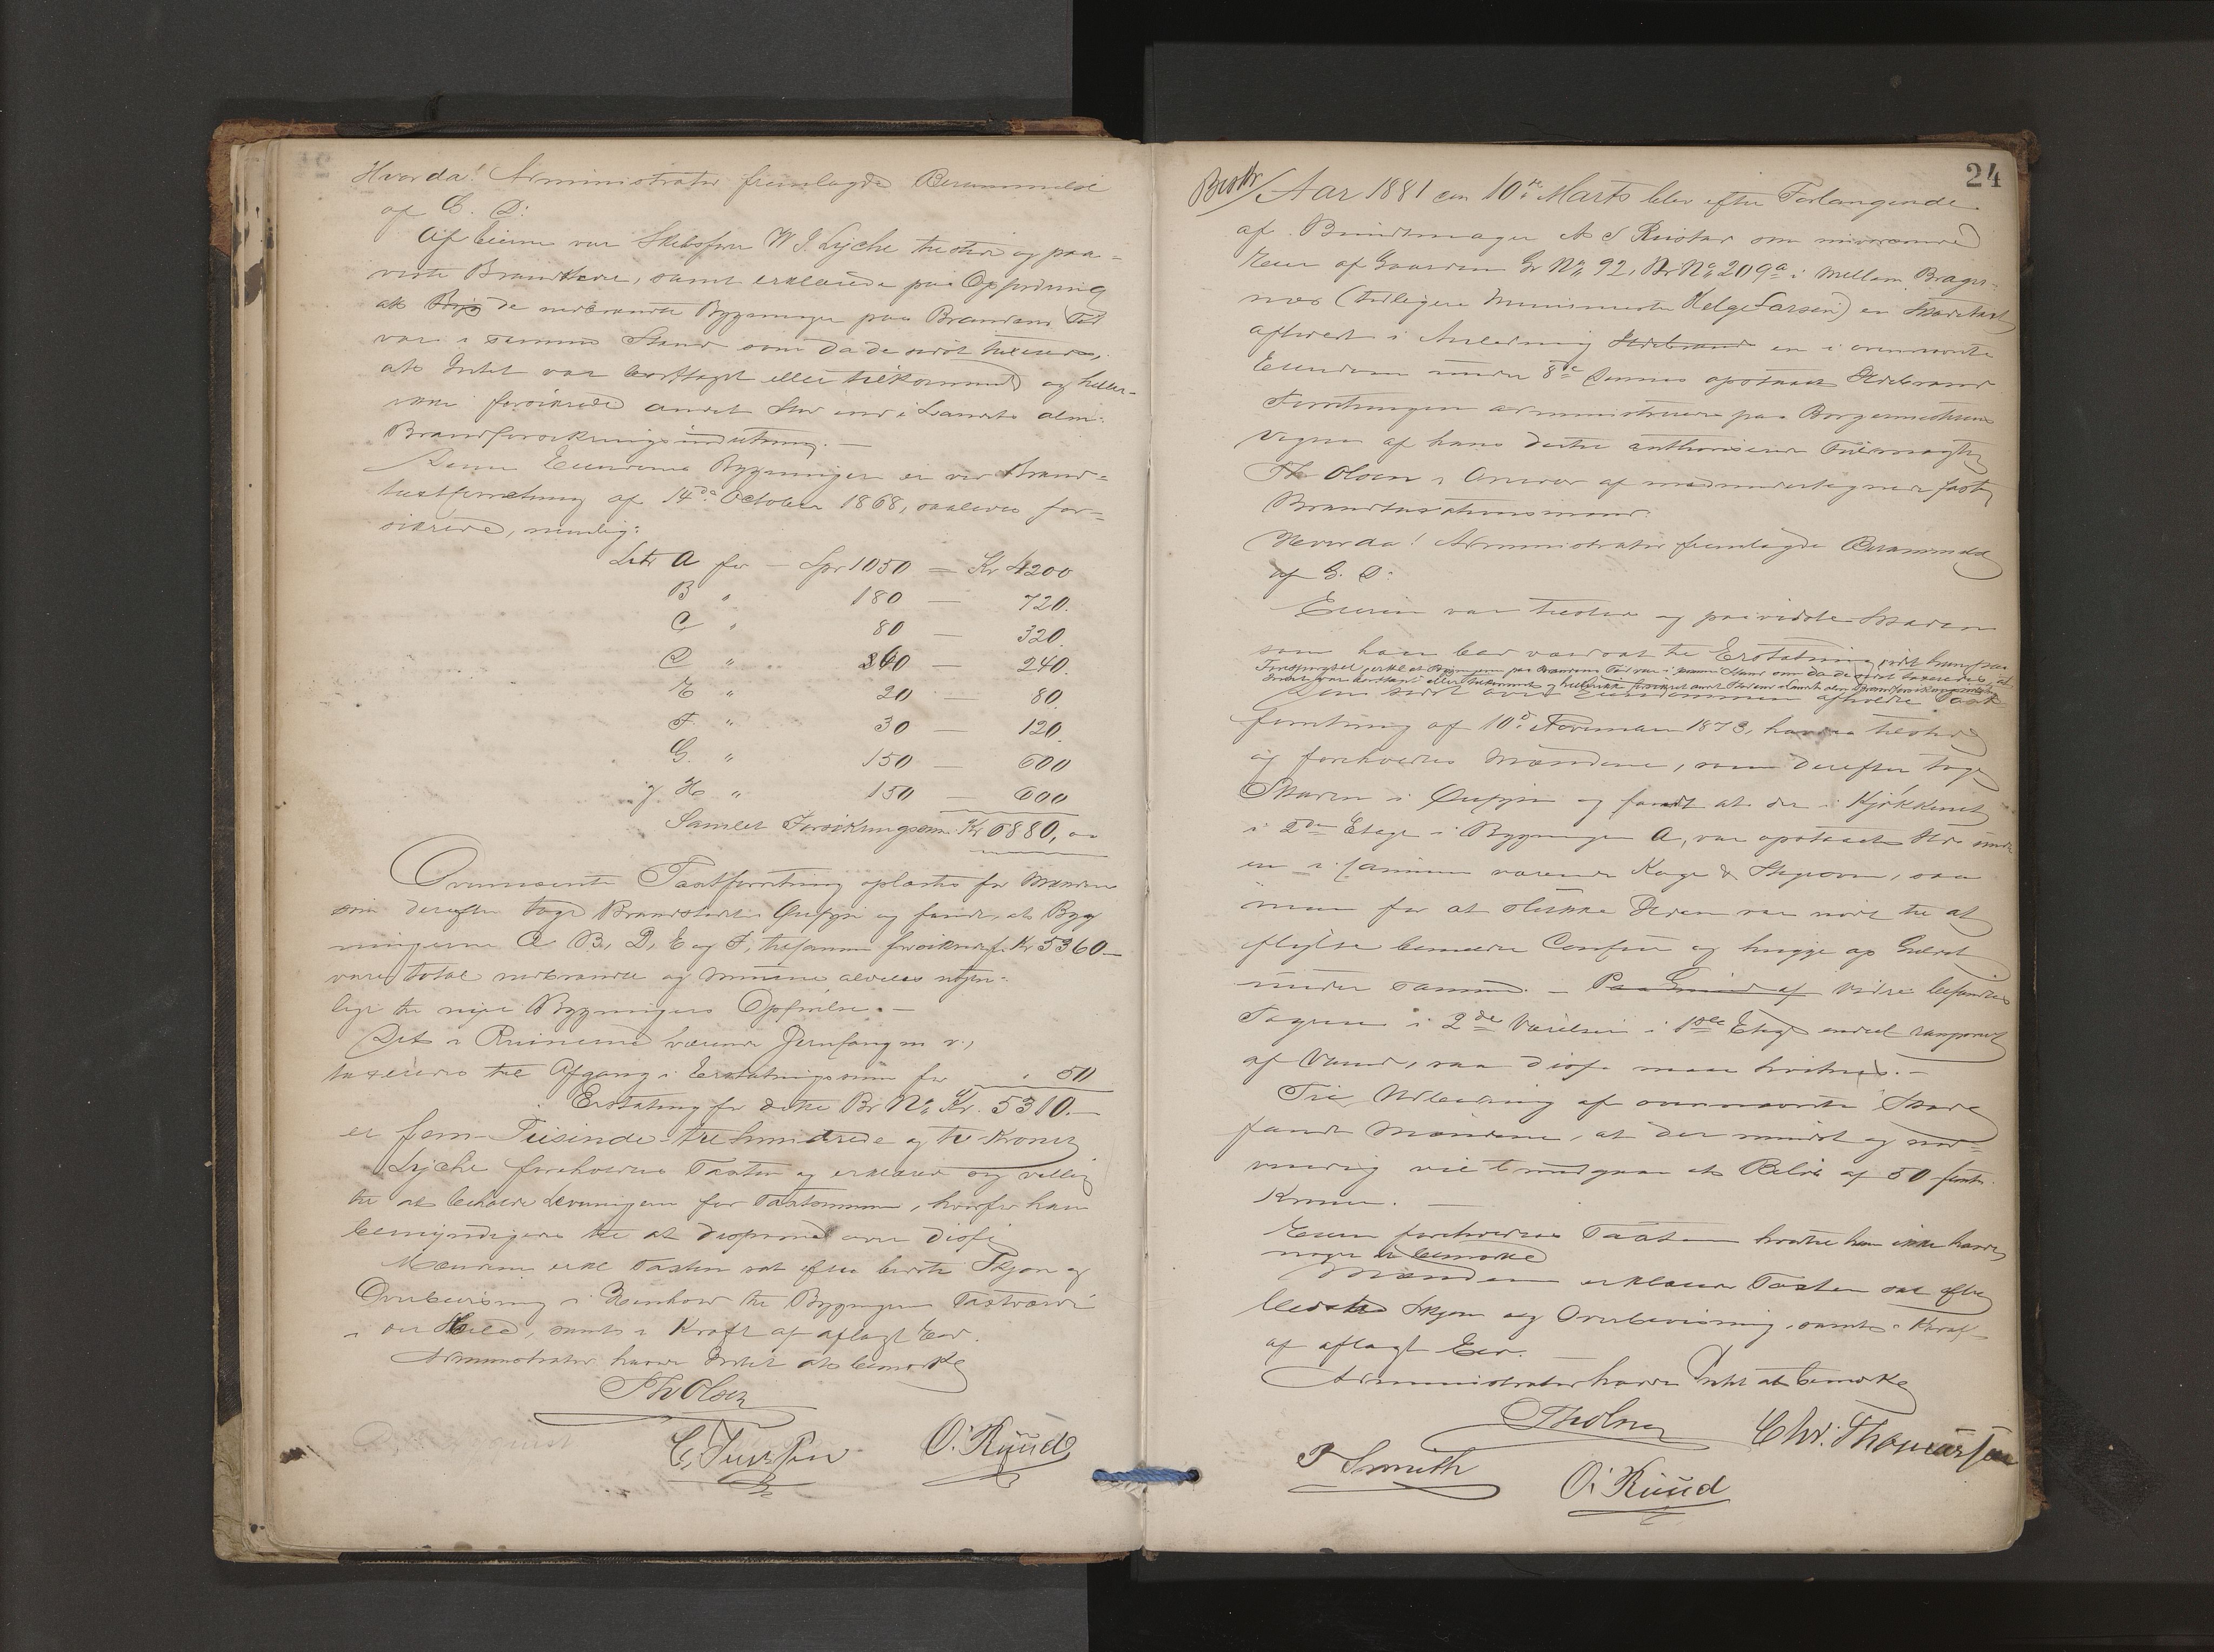 Hvorda! Administrator fremlagde Berammelse
af G. D:
Af Eierne var Skibsfører W. J. Lyche tilstede og paa-
viste Brandstedet, samt erklærede paa Opfordring
at Byg de nedbrændte Bygninger paa Brandens Tid
var i samme Stand som da de sidst taxeredes,
at Intet var borttaget eller tilkommet og heller-
ikke forsikrede andet Sted end i Landets alm:
Brandforsikringsindretning. —
Denne Eiendoms Bygninger er ved Brand-
taxtforretning af 14de October 1868, saaledes for-
sikrede, nemlig:
Litr A for — Spr 1050 — Kr 4200
B " 180 — 720.
C " 80 — 320.
D " 60 — 240.
E " 20 — 80.
F " 30 — 120.
G. " 150 — 600
og H " 150 — 600
Samlet Forsikringssum Kr 6880, 00
Ovennævnte Taxtforretning oplæstes for Mændene
som derefter toge Brandstedet i Øiesyn og fandt, at Byg
ningerne A B, D, E og F, tilsammen forsikrede for Kr 5360 —
vare total nedbrændte og Murene aldeles utjen-
lige til nye Bygningers Opførelse. —
Det i Ruinerne værende Jernfang m. v.,
taxeredes til Afgang i Erstatningssum for " 50
Erstatning for dette Br No Kr. 5310. —
er fem Tusinde tre hundrede og ti Kroner
Lyche foreholdtes Taxten og erklærede sig villig
til at beholde Levningerne for Taxtsummen, hvorfor han
bemyndigedes til at disponere over disse
Mændene erkl Taxten sat efter bedste Skjøn og
Overbevisning i Henhold til Bygningernes Taxtværdi
i sin Heled, samt i Kraft af aflagt Eed.
Administrator havde Intet at bemærke
Th Olsen
C. Iversen O. Ruud
24
Beskr / Aar 1881 den 10de Marts blev efter Forlangende
af Buntmager A S Ruistad som nuværende
Eier af Gaarden Gr No 92, Br No 209a i Mellem Brager-
næs (tidligere Murmester Helge Larsen) en Skadetaxt
afholdt i Anledning Ildebrand en i ovennævnte
Eiendom under 8de dennes opstaaet Ildebrand
Forretningen administreredes paa Borgermesterens
Vegne af hans dertil authoriserede Fuldmægtig
Th Olsen i Overvær af medundertegnede faste
Brandtaxationsmænd.
Hvorda! Administrator fremlagde Berammelse
af G. D:
Eieren var tilstede og paaviste Skaden
som han bad vurderet til Erstatning, idet han paa
Forespørgsel erkl at Bygningerne paa Brandens Tid var i samme Stand som da de sidst taxeredes, at
Intet var borttaget eller tilkommet og hellerikke forsikret andet Sted end i Landets alm Brandforsikringsindretn
Den sidst over Eiendommen afholdte Taxt-
forretning af 10de November 1873, havdes tilstede
og foreholdtes Mændene, som derefter toge
Skaden i Øiesyn og fandt at der i Kjøkkenet
i 2den Etage i Bygningen A, var opstaaet Ild under
en i samme værende Koge & Stegeovn, saa
man for at slukke Ilden var nødt til at
flytte bemeldte Comfur og hugge op Gulvet
under samme. — Paa Grund af Videre befandtes
Tagene i 2de Værelser i 1ste Etage endeel ramponeret
af Vand, saa disse maa hvittes. —
Til Udbedring af ovennævnte Skade
fandt Mændene, at der mindst og nød-
vendig vil medgaa et Beløb af 50 femti
Kroner. —
Eieren foreholdtes Taxten hvortil han ikke havde
noget at bemærke
Mændene erklærede Taxten sat efter
bedste Skjøn og Overbevisning, samt i Kraft
af aflagt Eed. —
Administrator havde Intet at bemærke
Th Olsen Chr. Thomassen
P Smith O. Ruud